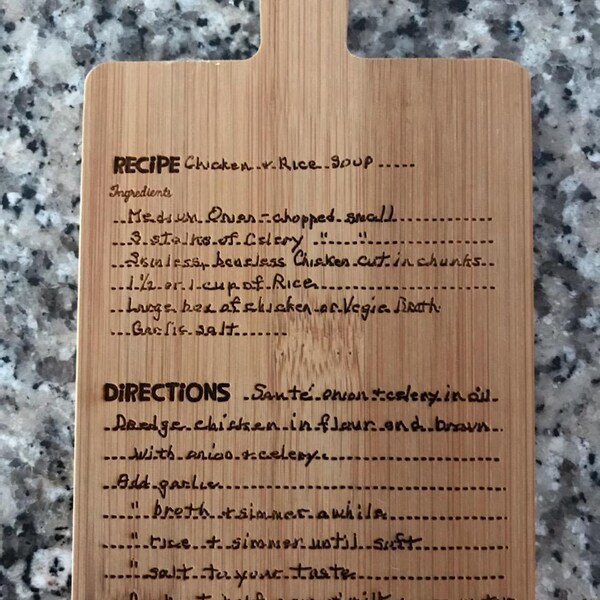 RECIPE Chicken + Rice Soup
Ingredients
Medium Onion - chopped small
3 stalks of Celery " "
Skinless, boneless Chicken cut in chunks
1½ or 1 cup of Rice
Large box of chicken or Vegie Broth
Garlic salt
DIRECTIONS Sauté onion + celery in oil
Dredge chicken in flour and brown
with onion + celery.
Add garlic
" broth + simmer awhile
" rice + simmer until soft
" salt to your taste